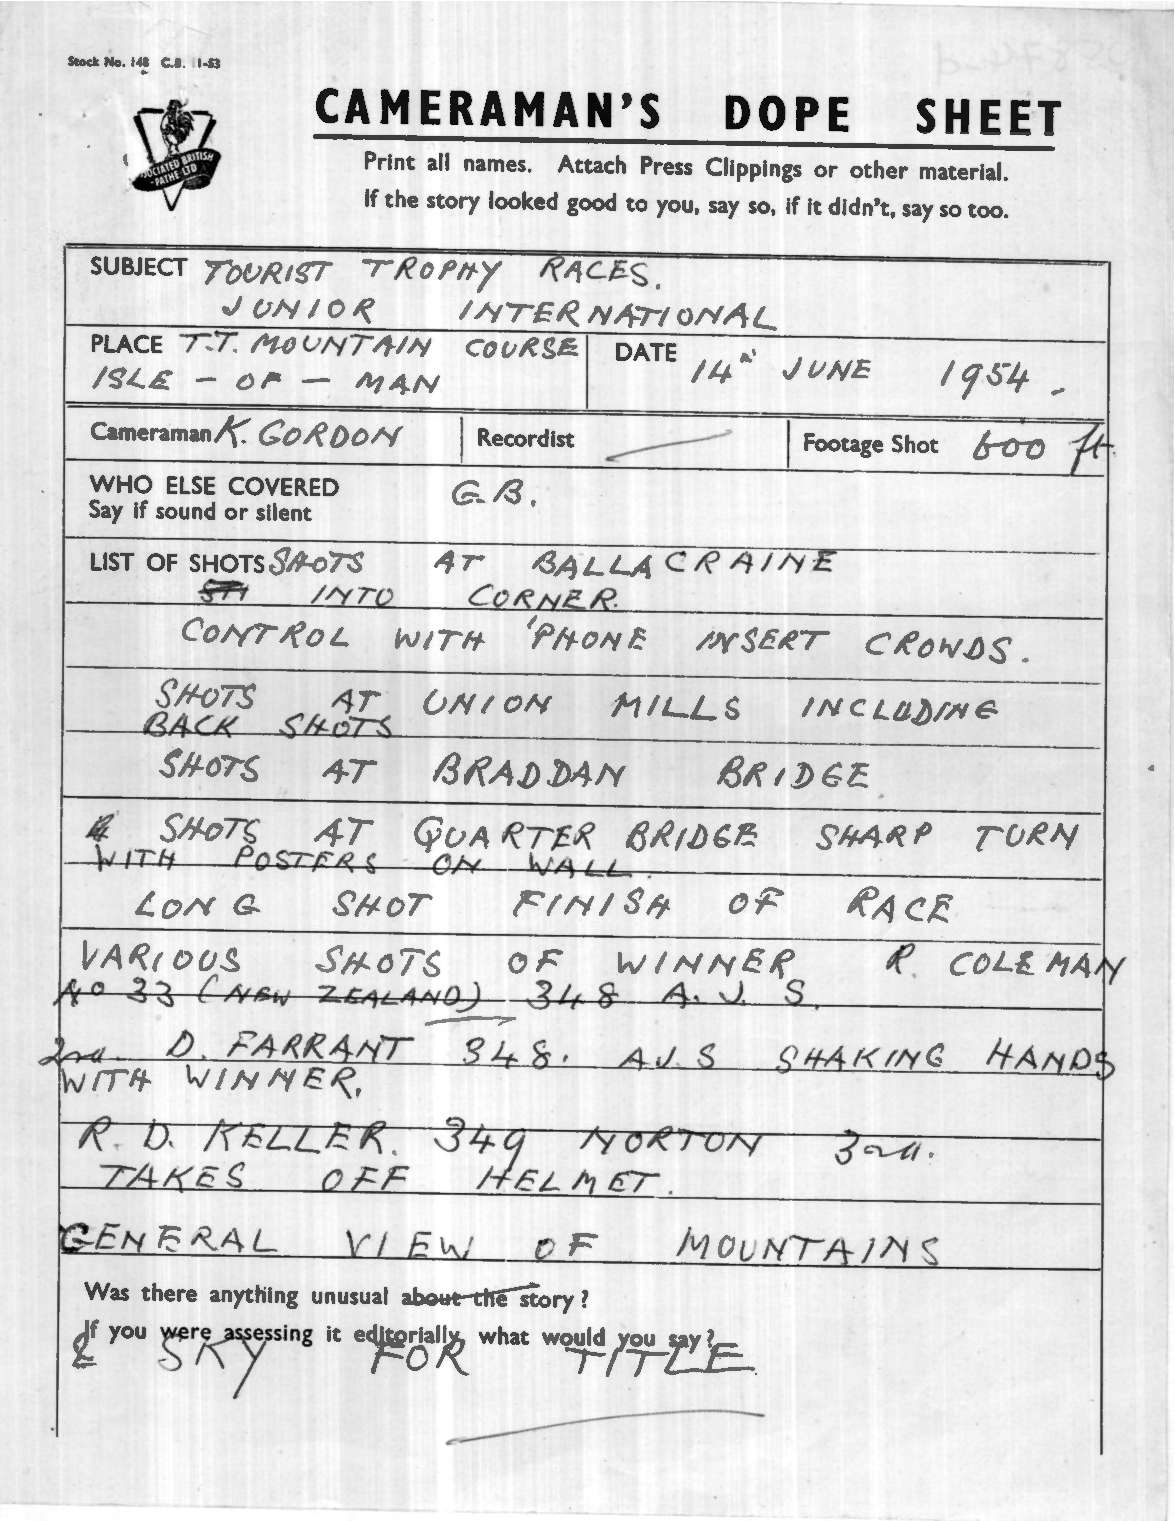 Stock No. 148 C.B. 11-53
CAMERAMAN'S DOPE SHEET
ASSOCIATED BRITISH
-PATHE LTD
Print all names. Attach Press Clippings or other material.
If the story looked good to you, say so, if it didn't, say so too.
SUBJECT TOURIST TROPHY RACES.
JUNIOR INTERNATIONAL
PLACE T.T. MOUNTAIN COURSE
ISLE - OF - MAN
DATE 14th JUNE 1954.
Cameraman K. GORDON
Recordist
Footage Shot 600 ft
WHO ELSE COVERED G.B.
Say if sound or silent
LIST OF SHOTS SHOTS AT BALLACRAINE
INTO CORNER.
CONTROL WITH 'PHONE INSERT CROWDS.
SHOTS AT UNION MILLS INCLUDING
BACK SHOTS
SHOTS AT BRADDAN BRIDGE.
SHOTS AT QUARTER BRIDGE SHARP TURN
WITH POSTERS ON WALL.
LONG SHOT FINISH OF RACE
VARIOUS SHOTS OF WINNER R. COLEMAN
No 33 (NEW ZEALAND) 348 A.J.S.
2nd. D. FARRANT 348. A.J.S SHAKING HANDS
WITH WINNER.
R. D. KELLER. 349 NORTON 3rd.
TAKES OFF HELMET.
GENERAL VIEW OF MOUNTAINS
Was there anything unusual about the story?
If you were assessing it editorially, what would you say?
& SKY FOR TITLE